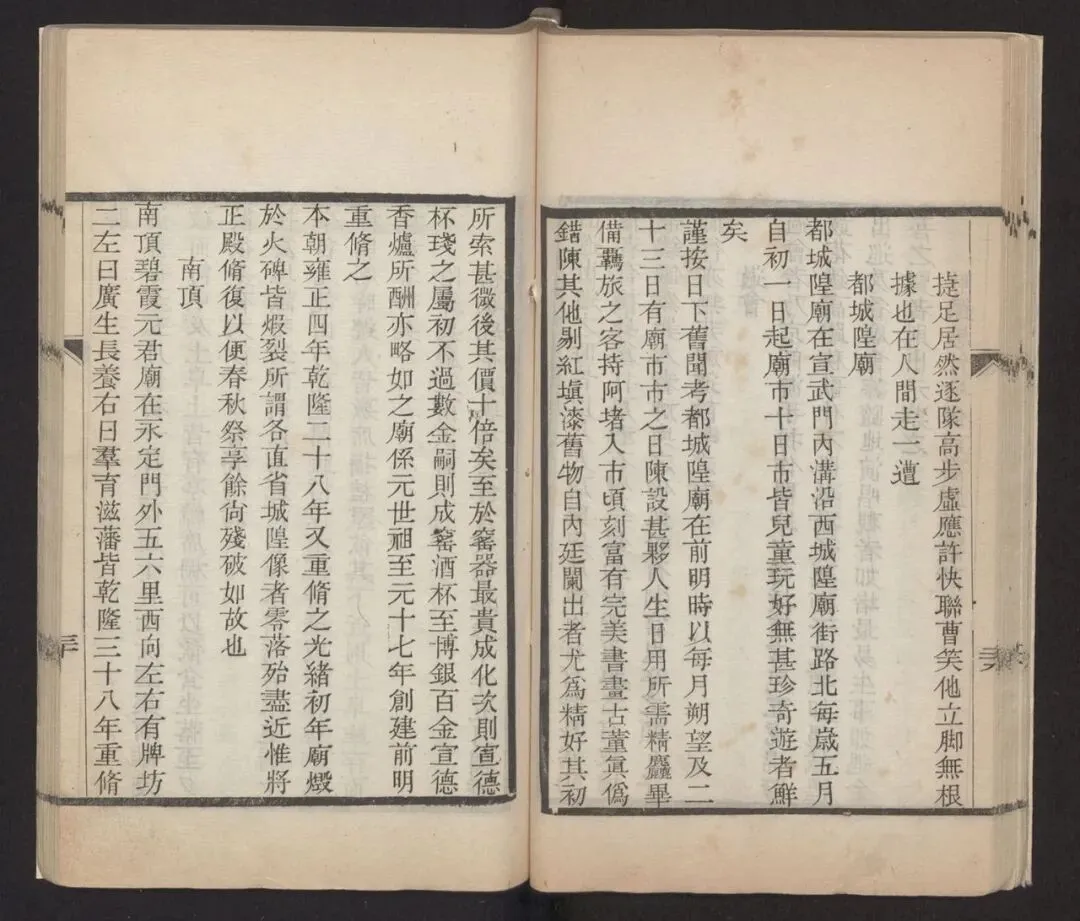 捷足居然逐隊高步虛應許快聯曹笑他立脚無根
據也在人間走一遭
都城隍廟
都城隍廟在宣武門內溝沿西城隍廟街路北每歲五月
自初一日起廟市十日市皆兒童玩好無甚珍奇遊者鮮
矣
謹按日下舊聞考都城隍廟在前明時以每月朔望及二
十三日有廟市市之日陳設甚夥人生日用所需精麤畢
備羈旅之客持阿堵入市頃刻富有完美書畫古董眞僞
錯陳其他剔紅塡漆舊物自內廷闌出者尤爲精好其初
所索甚微後其價十倍矣至於窰器最貴成化次則宣德
杯琖之屬初不過數金嗣則成窰酒杯至博銀百金宣德
香爐所酬亦略如之廟係元世祖至元十七年創建前明
重脩之
本朝雍正四年乾隆二十八年又重脩之光緒初年廟燬
於火碑皆煆裂所謂各直省城隍像者零落殆盡近惟將
正殿脩復以便春秋祭享餘尙殘破如故也
南頂
南頂碧霞元君廟在永定門外五六里西向左右有牌坊
二左曰廣生長養右曰羣育滋藩皆乾隆三十八年重脩
三十